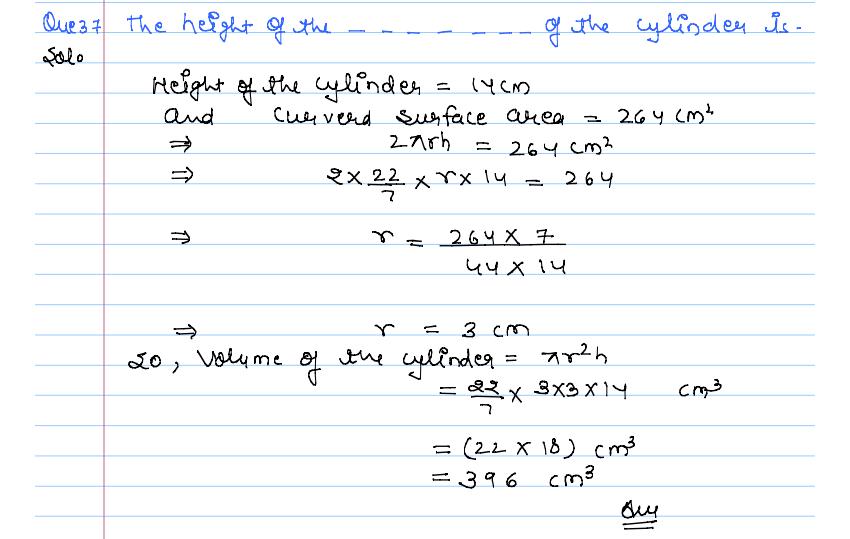 Que 37 The height of the _ _ _ _ _ _ _ of the cylinder is.
Solo
Height of the cylinder = 14 cm
and Curverd surface area = 264 cm²
⇒ 2πrh = 264 cm²
⇒ 2 × 22/7 × r × 14 = 264
⇒ r = 264 × 7 / 44 × 14
⇒ r = 3 cm
So, Volume of the cylinder = πr²h
= 22/7 × 3×3×14 cm³
= (22 × 18) cm³
= 396 cm³
Ans